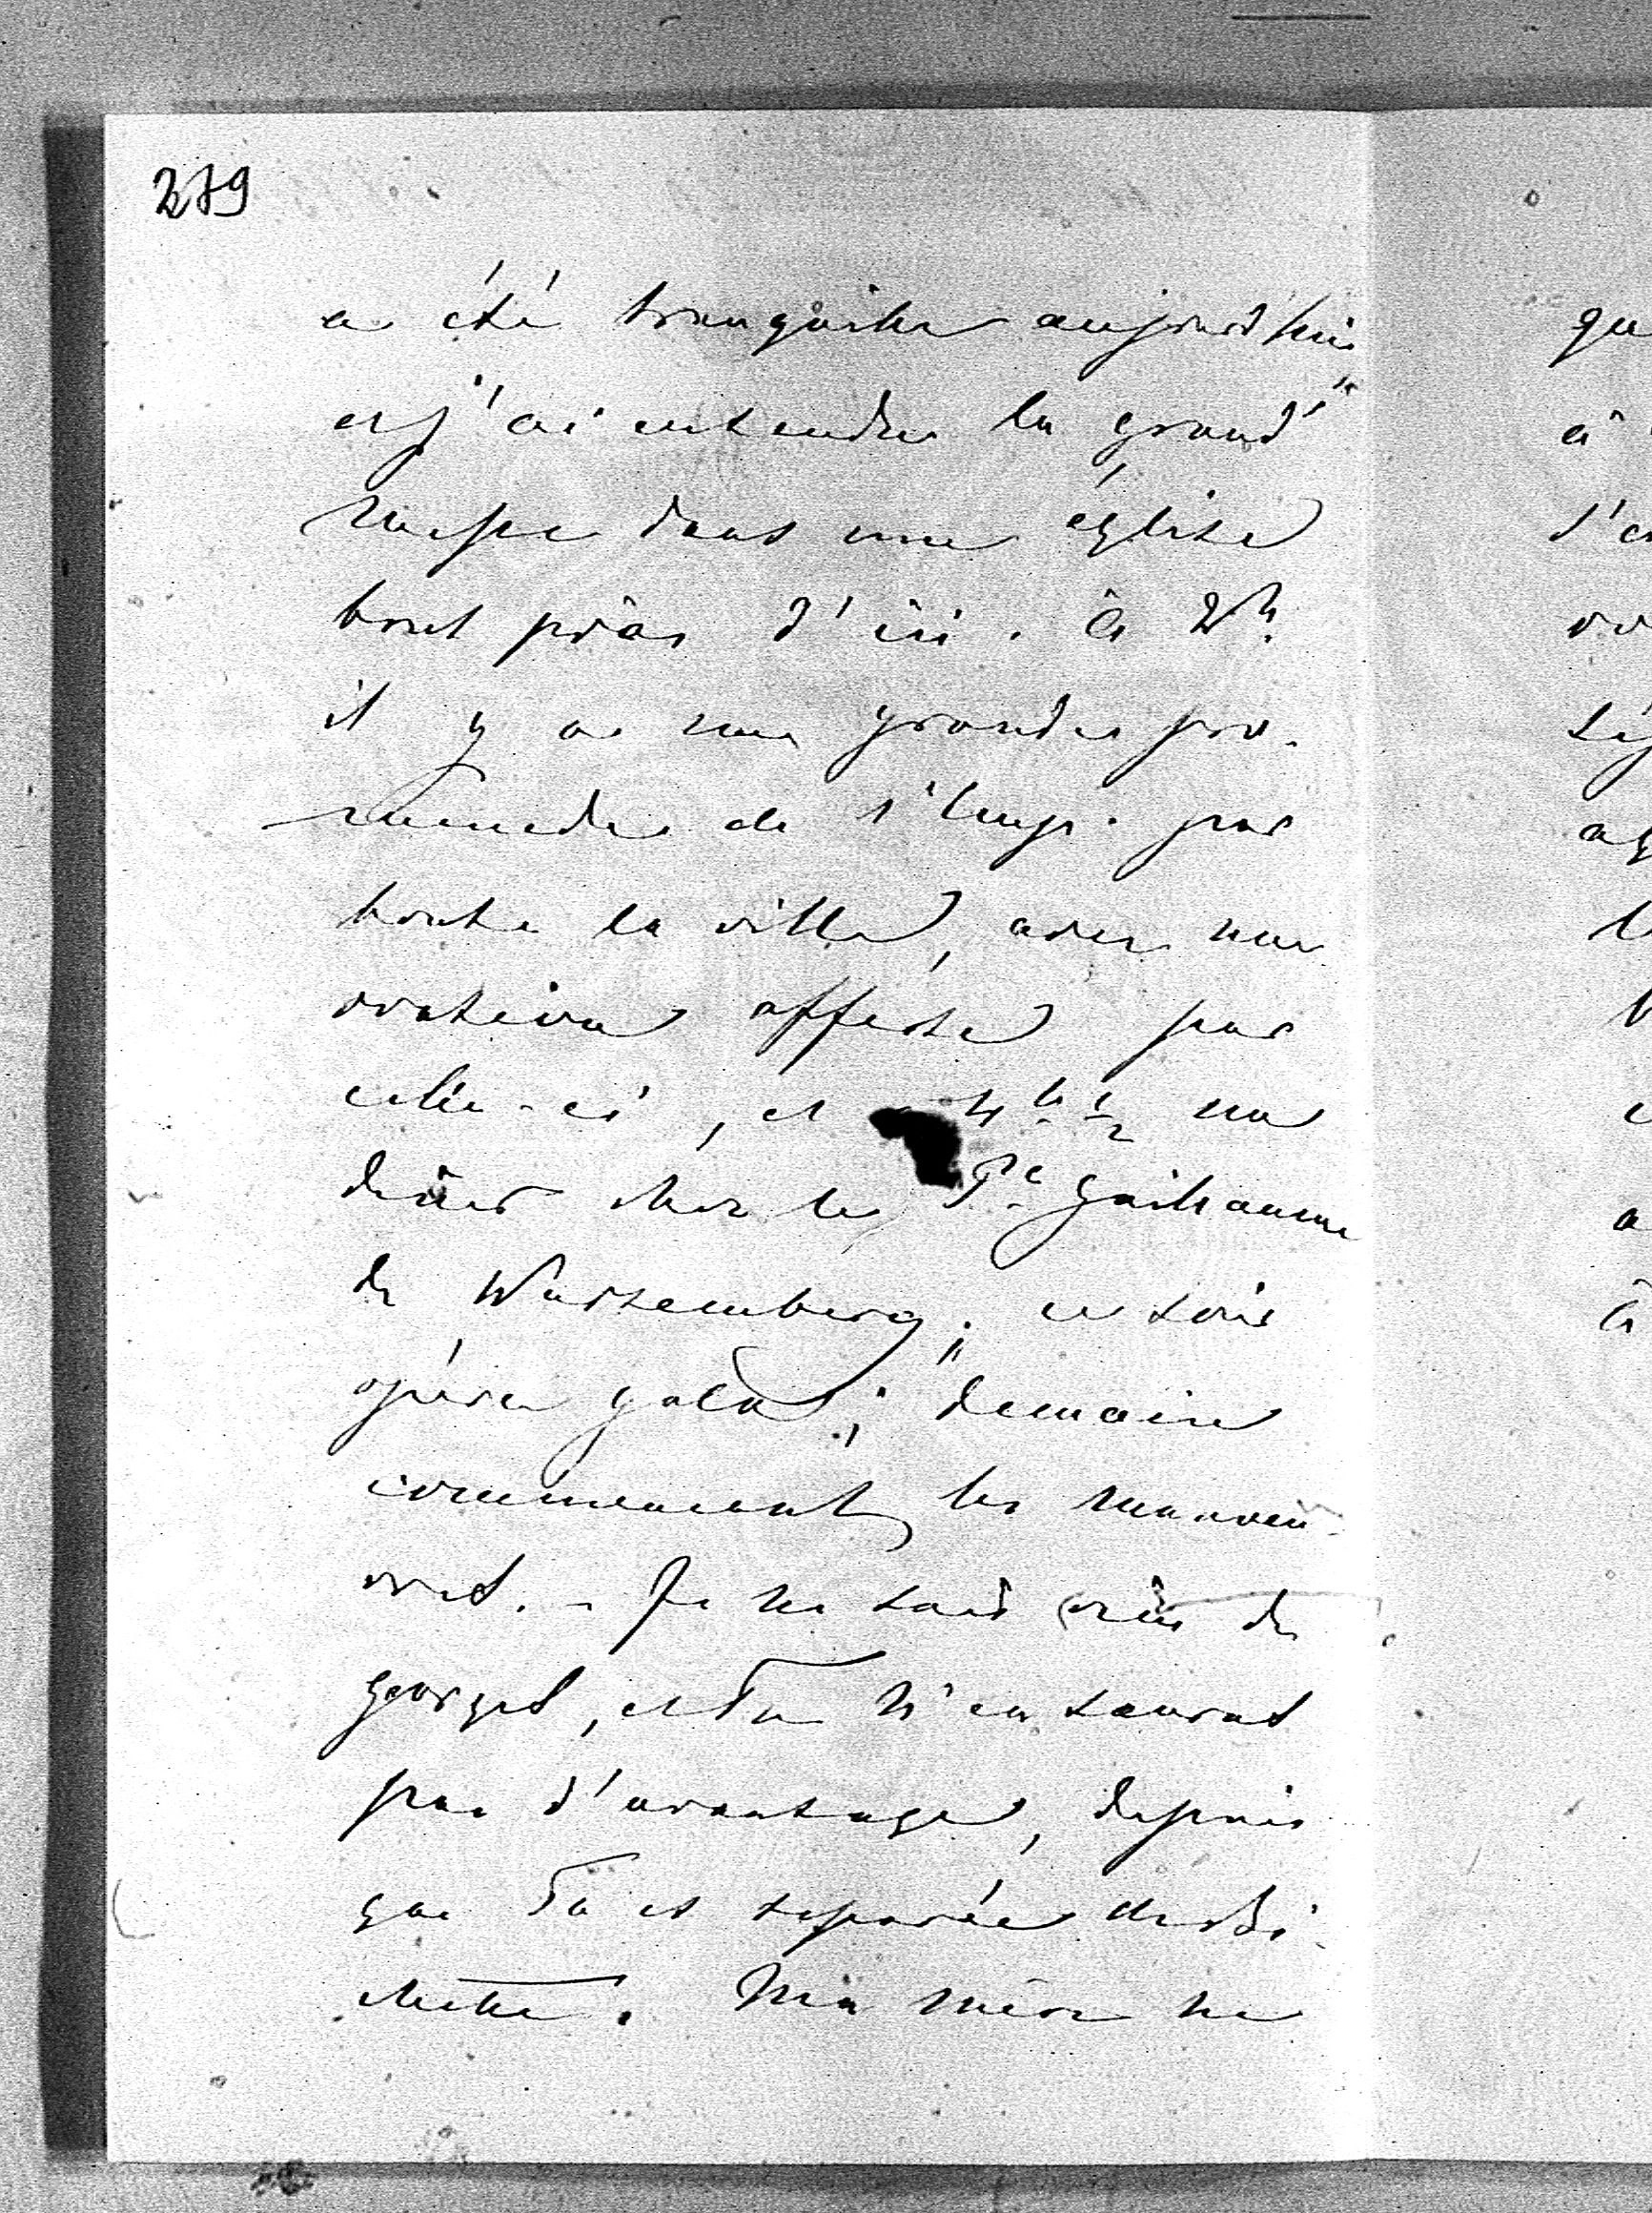 279
a été tranquille aujourd'hui
et j'ai entendu la grand'
messe dans une église
tout près d'ici. à 2h.
il y a une grande pro-
menade de l'Emp. par
toute la ville, avec une
ovation offerte par
celle-ci, et à 4h. 1/2 un
dîner chez le Pce Guillaume
de Wurtemberg; ce soir
opéra gala; demain
commencent les manoeu-
vres. - Je ne sais rien de
Georges, et Tu n'en sauras
pas d'avantage, depuis
que Tu es séparée de Bi-
chette. Ma mère ne
qu
à
d'a
a
à